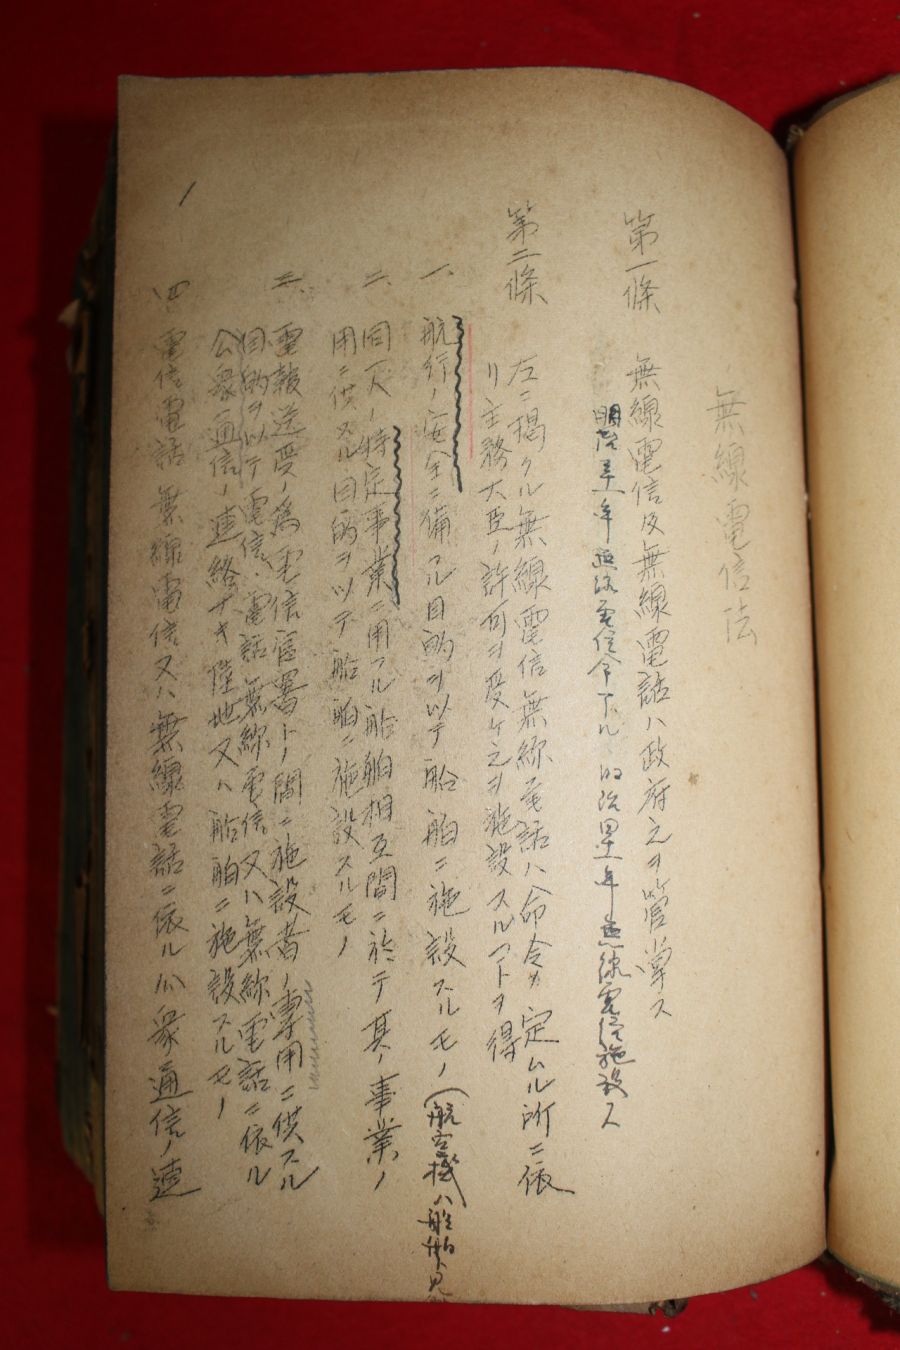 無線電信法
第一條 無線電信及無線電話ハ政府之ヲ管掌ス
明治 年無線電信令下ル 明治 年無線電信施設ス
第二條 左ニ掲クル無線電信無線電話ハ命令ノ定ムル所ニ依
リ主務大臣ノ許可ヲ受ケ之ヲ施設スルコトヲ得
一、航行ノ安全ニ備フル目的ヲ以テ船舶ニ施設スルモノ(航空機ハ船舶ト見
二、同一人ノ特定事業ニ用フル船舶相互間ニ於テ其ノ事業ノ
用ニ供スル目的ヲ以テ船舶ニ施設スルモノ
三、電報送受ノ為電信官署トノ間ニ施設者ノ専用ニ供スル
目的ヲ以テ電信、電話無線電信又ハ無線電話ニ依ル
公衆通信ノ連絡ナキ陸地又ハ船舶ニ施設スルモノ
四 電信電話無線電信又ハ無線電話ニ依ル公衆通信ノ連